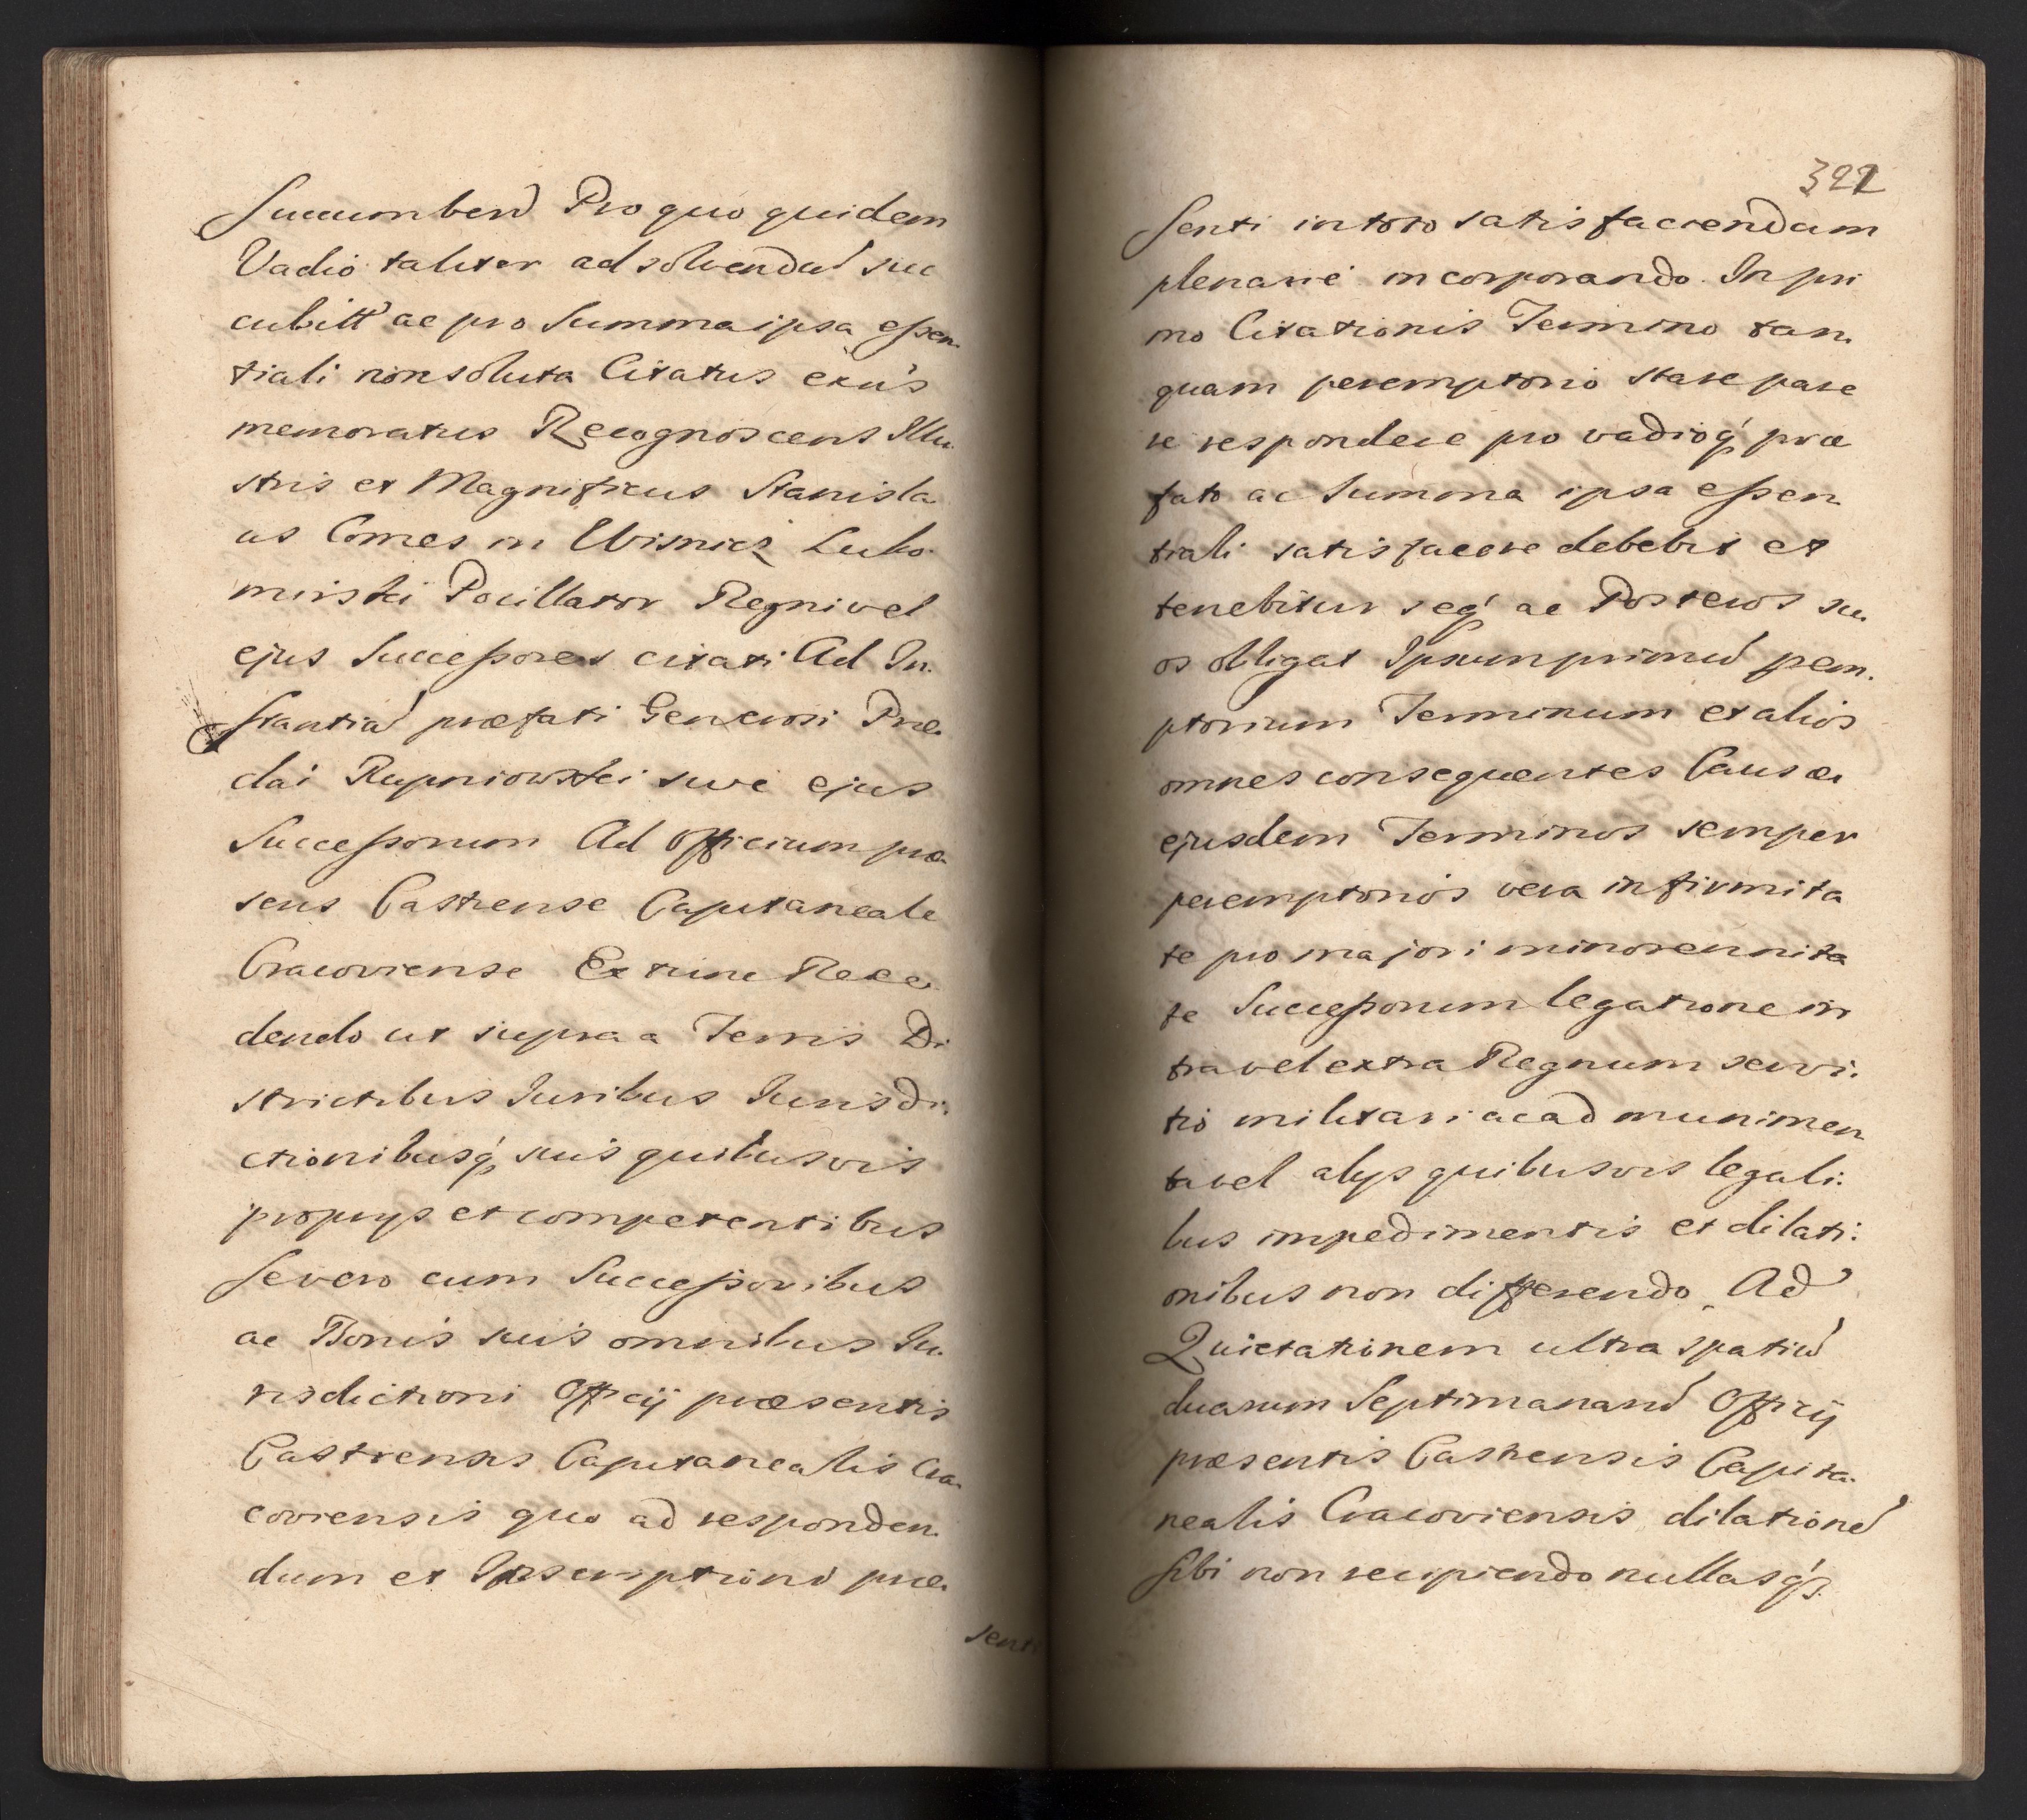 Succumbend Pro quo quidem
Vadio taliter ad solvendũ suc
cubitt ac pro Summa ipsa essen.
tiali non soluta Citatus
memoratus Recognoscens Illu.
stris et Magnificus Stanisla
us Comes in Wisnicz Lubo.
mirski Pocillator Regni vel
ejus Successores citati Ad In.
stantiã præfati Generosi Præ.
clai Rupniowski sive ejus
Successorum Ad Officium præ.
sens Castrense Capitaneale
Cracoviense Ex tunc Rece.
dendo ut supra a Terris Di.
strictibus Juribus Jurisdi.
ctionibusq́ suis quibusvis
proprys et competentibus
se vero cum Successoribus
ac Bonis suis omnibus Ju.
risdictioni Officij præsentis
Castrensis Capitanealis Cra.
coviensis quo ad responden.
dum et Inscriptioni præ.
senti
322
senti in toto satisfaciendam
plenarie incorporando. In pri
mo Citationis Termino tan.
quam peremptorio stare pare
re respondere pro vadioq́ præ
fato ac Summa ipsa essen
tiali satisfacere debebit et
tenebitur seq́ ac Posteros su.
os obligat Ipsum primũ pem.
ptorium Terminum et alios
omnes consequentes Causæ
ejusdem Terminos semper
peremptorios vera infirmita
te pro majori minorennita
te Successorum legatione in
tra vel extra Regnum servi.
tio militari ac ad munimen
ta vel alys quibusvis legali.
bus impedimentis et dilati:
onibus non differendo Ad
Quietationem ultra spatiũ
duarum Septimanarũ Officij
præsentis Castrensis Capita.
nealis Cracoviensis dilationẽ
sibi non recipiendo nullasq́